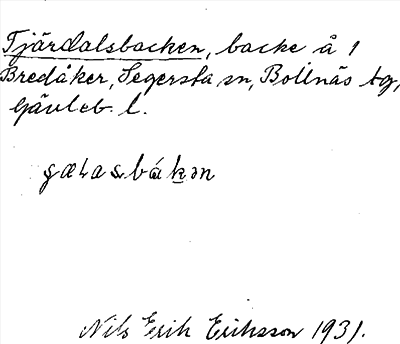 Fjärdalsbacken, backe å 1
Bredåker, Segersta sn, Bollnäs tg,
Gävleb. l.
Nils Erik Eriksson 1931.